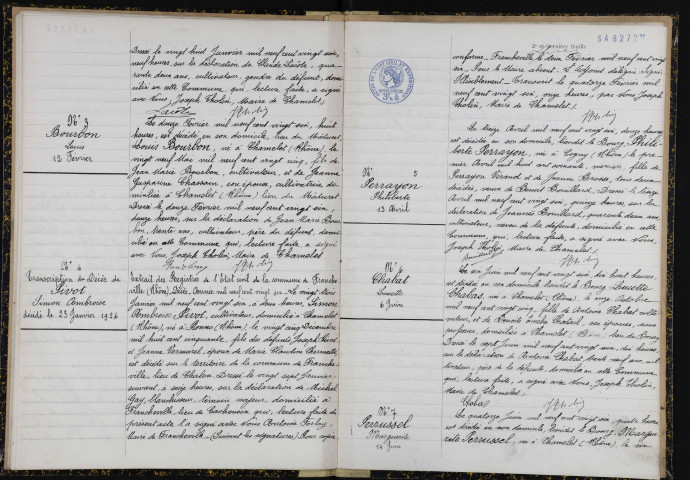 Dressé le vingt huit Janvier mil neuf cent vingt six,
neuf heures, sur la déclaration de Claude Lacôte, qua-
rante deux ans, cultivateur, gendre du défunt, domi-
cilié en cette Commune, qui, lecture faite, a signé
avec Nous, Joseph Tholin, Maire de Chamelet.
Lacôte
N° 3
Bourbon
Louis
12 Février
Le douze Février mil neuf cent vingt six, huit
heures, est décédé en son domicile, lieu du
Louis Bourbon, né à Chamelet (Rhône), le
vingt neuf Mai mil neuf cent vingt cinq, fils de
Jean Marie Bourbon, cultivateur, et de Jeanne
son épouse, cultivatrice do-
miciliés à Chamelet (Rhône) lieu du
Dressé le douze Février mil neuf cent vingt six,
douze heures, sur la déclaration de Jean Marie Bour-
bon, trente ans, cultivateur, père du défunt, domi-
cilié en cette Commune, qui, lecture faite, a signé
avec Nous, Joseph Tholin, Maire de Chamelet
N° 4
Transcription du Décès de
Pivot
Simon Ambroise
décédé le 23 Janvier 1926
Extrait des Registres de l'Etat civil de la commune de Franche-
ville (Rhône), Décès, Année mil neuf cent vingt six. Le vingt trois
Janvier mil neuf cent vingt six, à deux heures, Simon
Ambroise Pivot, cultivateur, domicilié à Chamelet
(Rhône), né à (Rhône), le vingt cinq Décembre
mil huit cent cinquante, fils des défunts Joseph Pivot
et Jeanne époux de Marie Claudine
est décédé sur le territoire de la commune de Franche-
ville, lieu de Dressé le vingt sept Janvier
suivant, à seize heures, sur la déclaration de Michel
Gay, témoin majeur, domicilié à
Francheville, lieu qui, lecture faite du
présent acte, l'a signé avec Nous Antoine
Maire de Francheville. (Suivent les signatures). Pour copie
2e et dernière feuille
SA6272
conforme. Francheville le deux Février mil neuf cent vingt
six. Pour le Maire absent. L'Adjoint délégué. Signé
Transcrit le quatorze Février mil
neuf cent vingt six, onze heures, par Nous Joseph
Tholin, Maire de Chamelet.
N° 5
Perrayon
Philiberte
13 Avril
Le treize Avril mil neuf cent vingt six, douze heures
est décédée en son domicile, lieudit le Bourg, Phili-
berte Perrayon, née à Cogny (Rhône) le pre-
mier Avril mil huit cent soixante, fille de
Perrayon et de Jeanne Brosse, tous deux
décédés, veuve de Benoit Bouillard. Dressé le treize
Avril mil neuf cent vingt six, quinze heures, sur la
déclaration de Joannès Bouillard, quarante deux ans,
cultivateur, neveu de la défunte, domicilié en cette
Commune, qui, lecture faite, a signé avec Nous,
Joseph Tholin, Maire de Chamelet.
N° 6
Chabat
Lucette
6 Juin
Le six Juin mil neuf cent vingt six, dix huit heures,
est décédée en son domicile lieudit le Bourg, Lucette
Chabat, née à Chamelet (Rhône), le onze Octobre
mil neuf cent vingt cinq, fille de Antoine Chabat culti-
vateur, et de son épouse, sans
profession, domiciliés à Chamelet (Rhône), lieu du Bourg
Dressé le sept Juin mil neuf cent vingt six, dix heures
sur la déclaration de Antoine Chabat, trente neuf ans, cul-
tivateur, père de la défunte, domicilié en cette Commune
qui, lecture faite, a signé avec Nous, Joseph Tholin,
Maire de Chamelet.
Chabat
N° 7
Perrussel
Marguerite
14 Juin
Le quatorze Juin mil neuf cent vingt six, quatre heures
est décédée en son domicile, lieudit le Bourg, Margue-
rite Perrussel, née à Chamelet (Rhône), le six